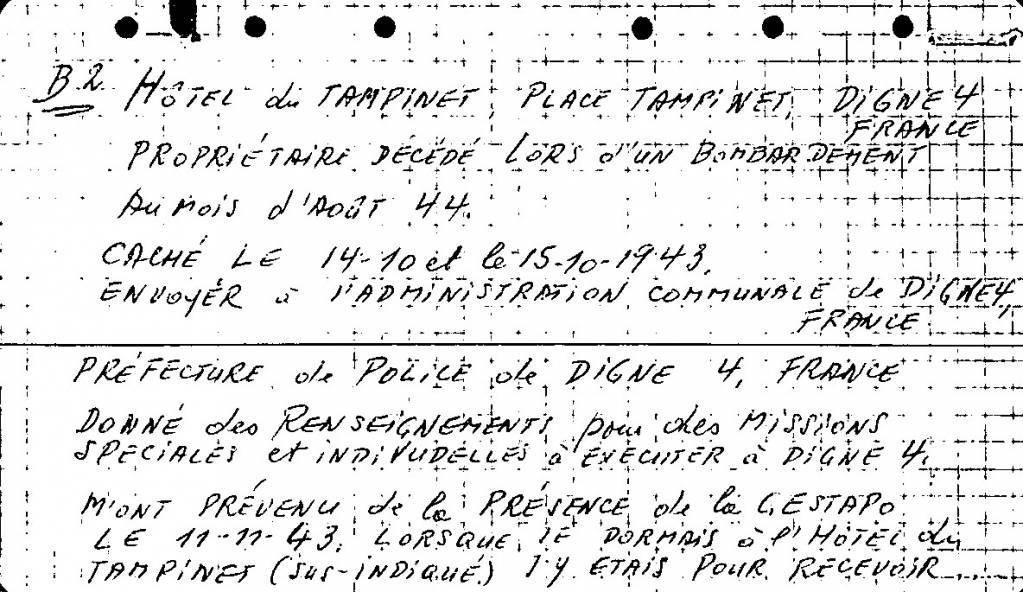 B2 HÔTEL du TAMPINET, PLACE TAMPINET, DIGNE 4
FRANCE
PROPRIÉTAIRE DÉCÉDÉ LORS d'UN BOMBARDEMENT
AU MOIS d'AOÛT 44.
CACHÉ LE 14-10 et le 15-10-1943.
ENVOYÉR à l'ADMINISTRATION COMMUNALE de DIGNE 4,
FRANCE
PRÉFECTURE de POLICE de DIGNE 4, FRANCE
DONNÉ des RENSEIGNEMENTS pour des MISSIONS
SPÉCIALES et INDIVUDELLES à EXÉCUTER à DIGNE 4.
M'ONT PRÉVENU de la PRÉSENCE de la GESTAPO
LE 11-11-43. LORSQUE JE DORMAIS à l'HÔTEL du
TAMPINET (SUS-INDIQUÉ) J'Y ETAIS POUR RECEVOIR...